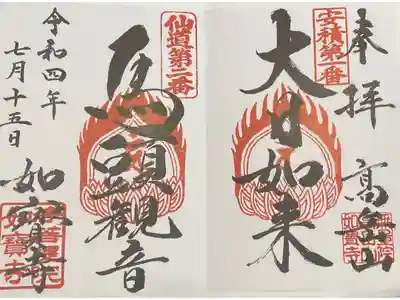 奉拝
安積第一番
大日如来
高嶽山
如寶寺
仙道第二番
馬頭観音
如寶寺
令和四年
七月十五日